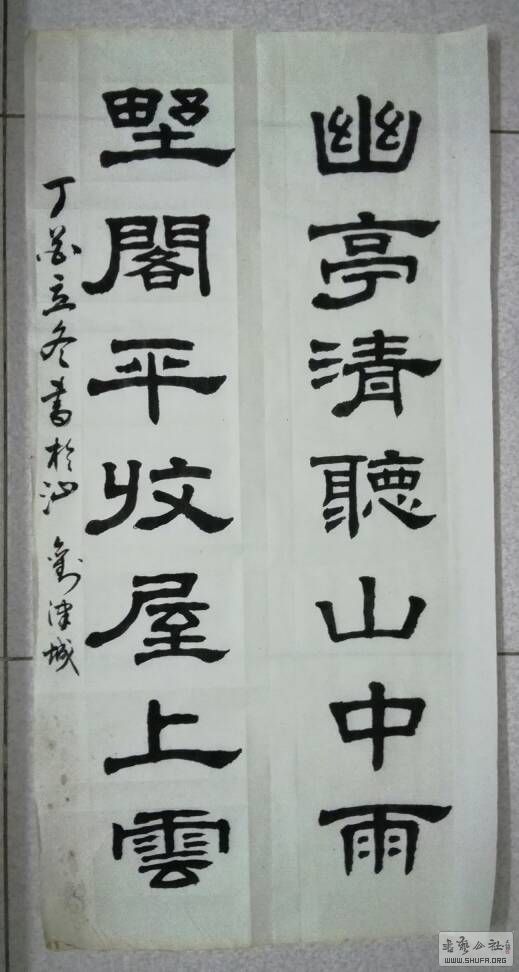 幽亭清聽山中雨
野閣平收屋上雲
丁酉立冬書於汕 劉津城
书艺公社
WWW.SHUFA.ORG